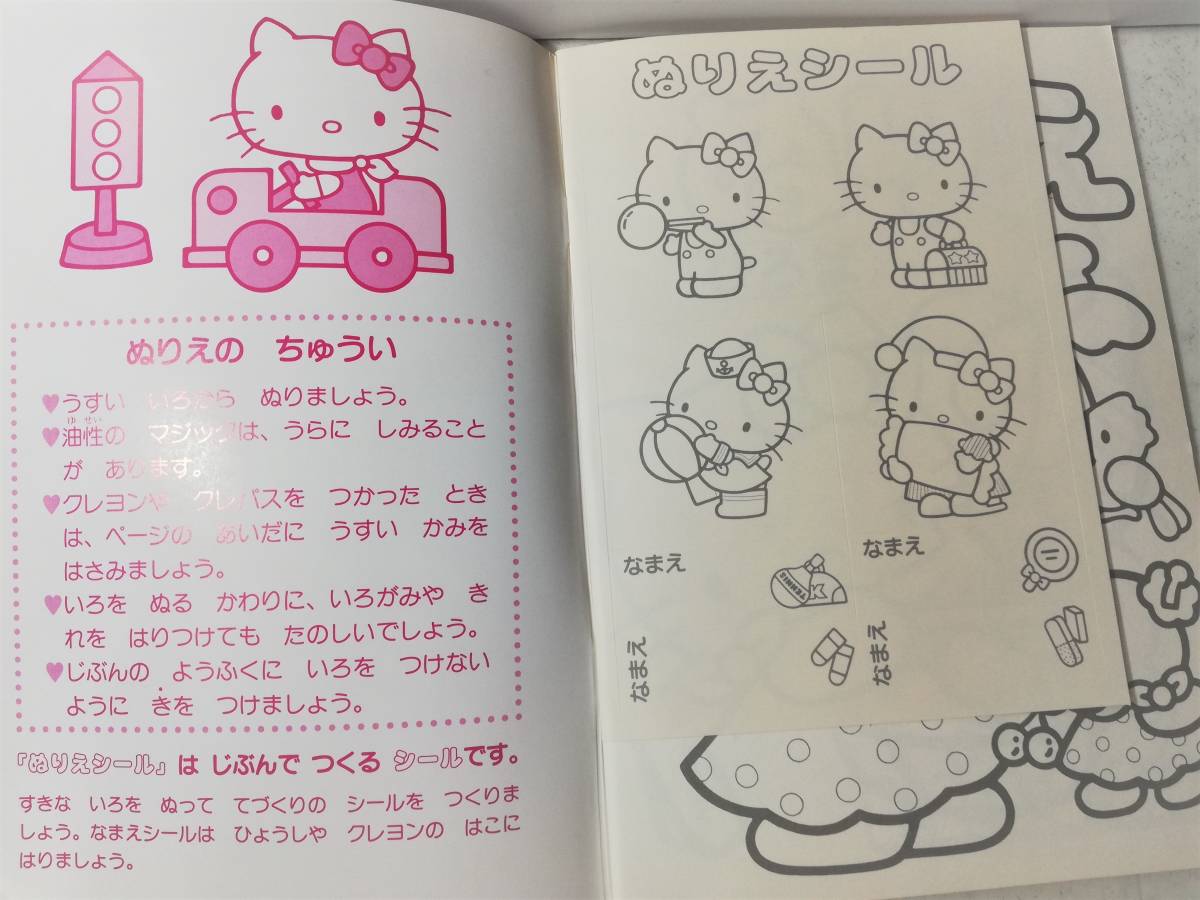 ぬりえの ちゅうい
♥うすい いろから ぬりましょう。
ゆせい
♥油性の マジックは、うらに しみること
が あります。
♥クレヨンや クレパスを つかった とき
は、ページの あいだに うすい かみを
はさみましょう。
♥いろを ぬる かわりに、いろがみや き
れを はりつけても たのしいでしょう。
♥じぶんの ようふくに いろを つけない
ように きを つけましょう。
『ぬりえシール』は じぶんで つくる シールです。
すきな いろを ぬって てづくりの シールを つくりま
しょう。なまえシールは ひょうしや クレヨンの はこに
はりましょう。
ぬりえシール
なまえ
TENNIS
K
なまえ
なまえ
なまえ